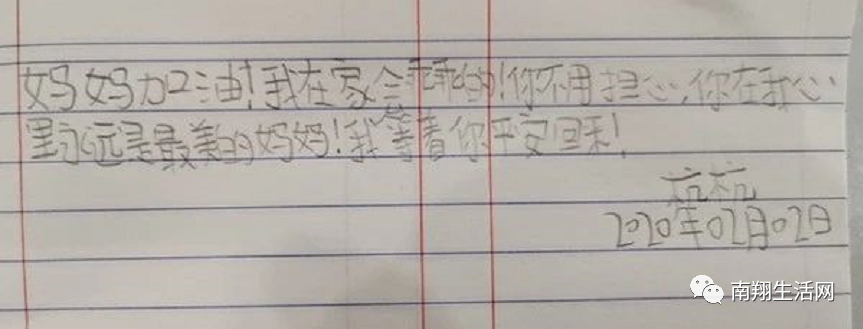 妈妈加油!我在家会乖乖的!你不用担心,你在我心
里永远是最美的妈妈!我等着你平安回来!
杭杭
2020年02月02日
南翔生活网